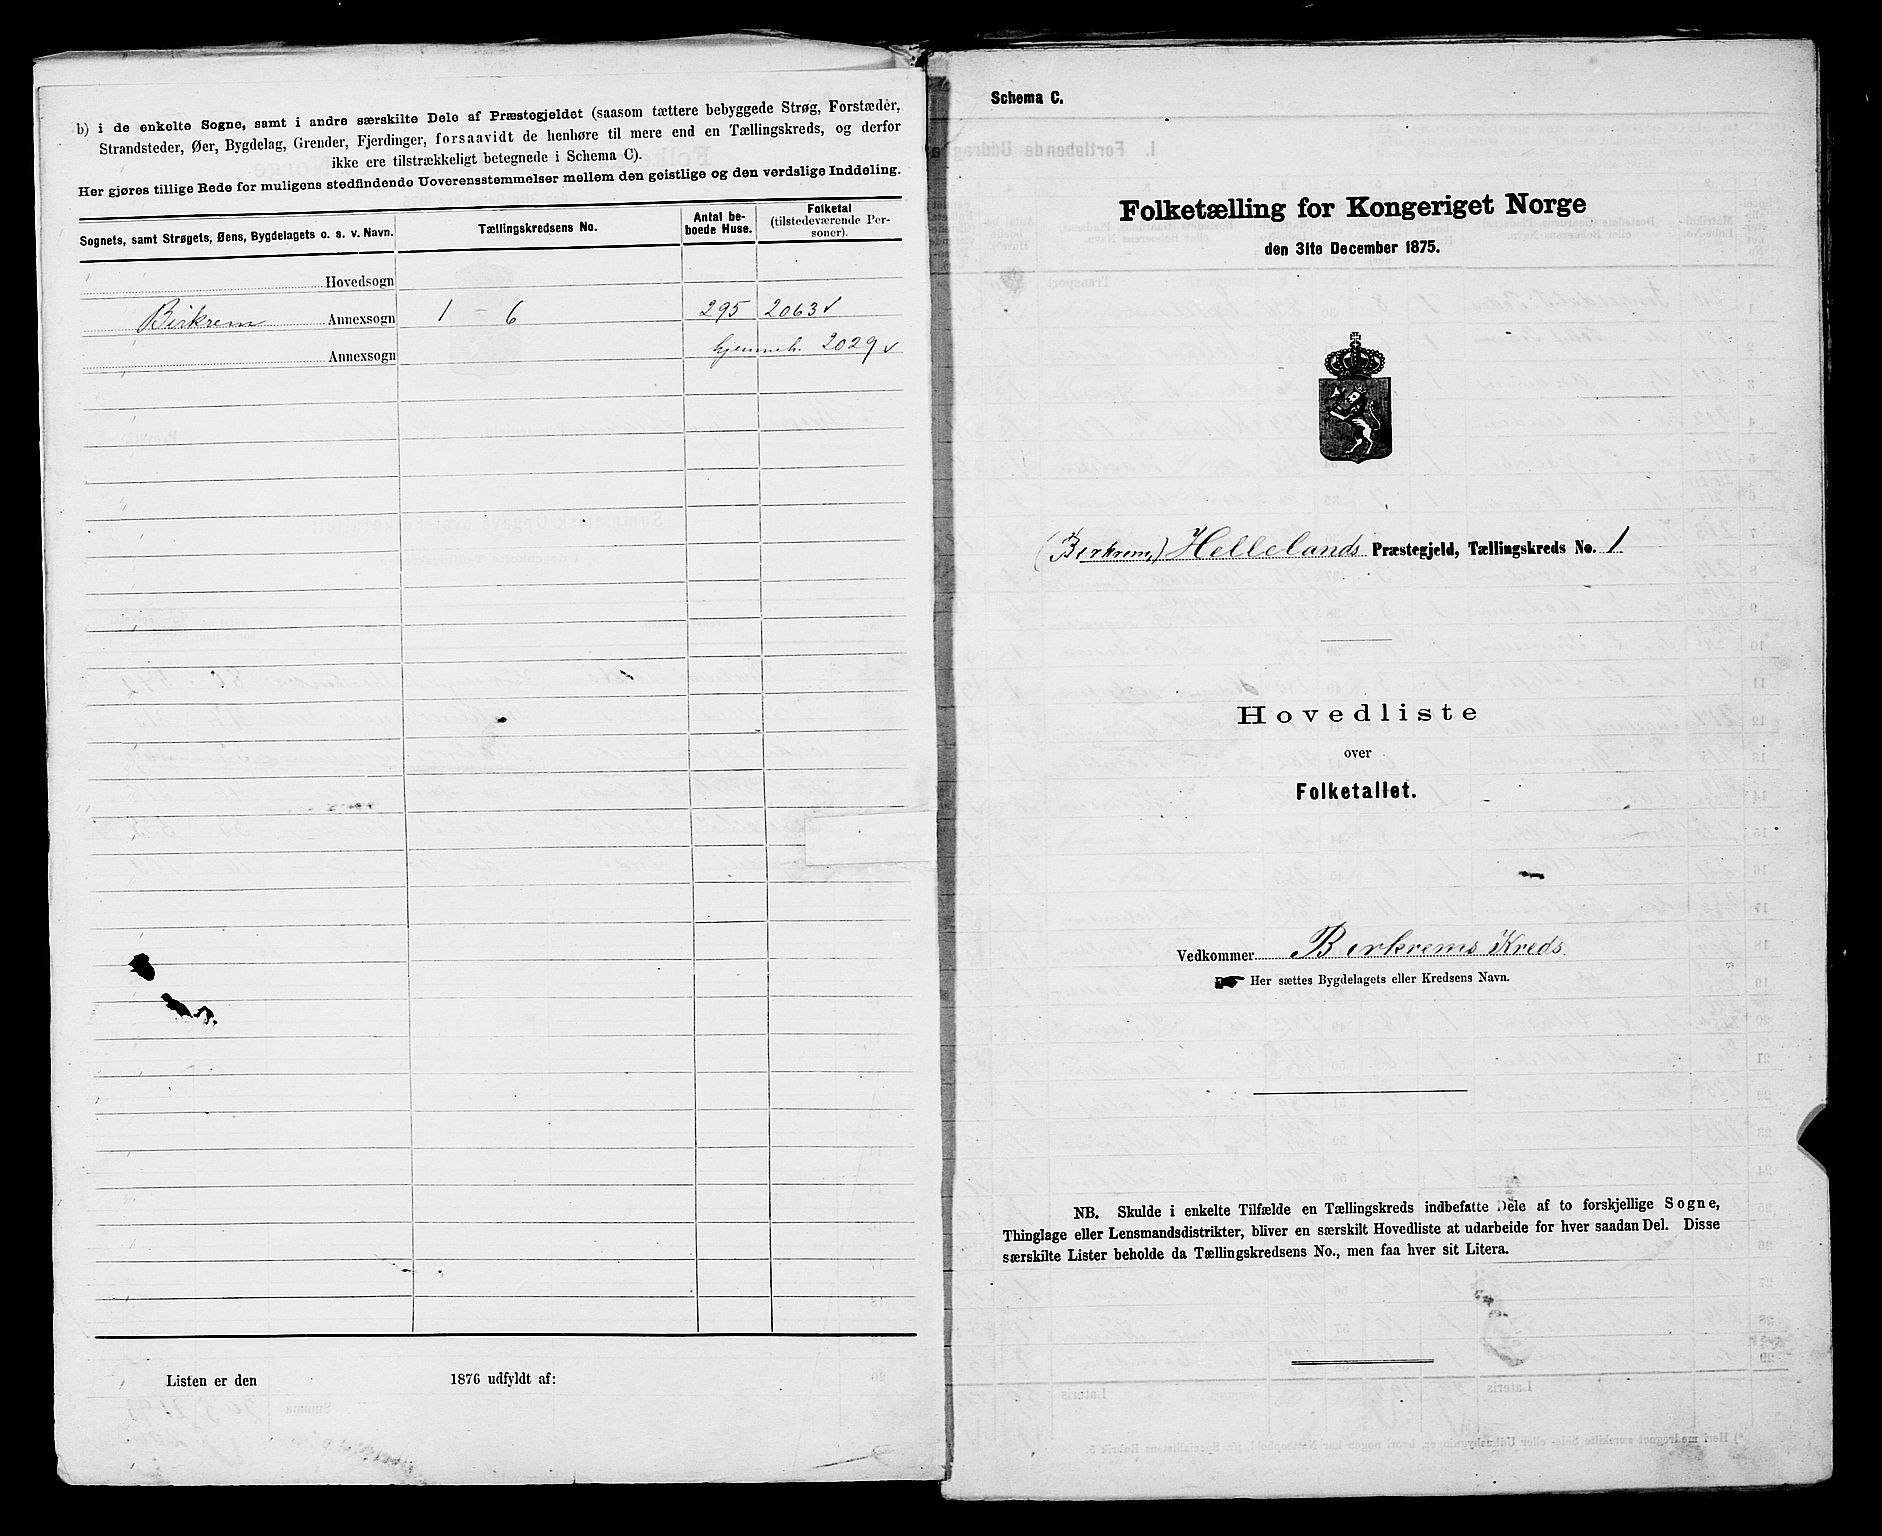 b) i de enkelte Sogne, samt i andre særskilte Dele af Præstegjeldet (saasom tættere bebyggede Strøg, Forstæder,
Strandsteder, Øer, Bygdelag, Grender, Fjerdinger, forsaavidt de henhøre til mere end en Tællingskreds, og derfor
ikke ere tilstrækkeligt betegnede i Schema C).
Her gjøres tillige Rede for muligens stedfindende Uoverensstemmelser mellem den geistlige og den verdslige Inddeling.
Sognets, samt Strøgets, Øens, Bygdelagets o. s. v. Navn. Tællingskredsens No. Antal beboede Huse. Folketal (tilstedeværende Personer).
Hovedsogn
Birkrem Annexsogn 1 - 6 295 2063
Annexsogn hjemmeh. 2029
Listen er den 1876 udfyldt af:
Schema C.
Folketælling for Kongeriget Norge
den 31te December 1875.
(Berkrem) Hellelands Præstegjeld, Tællingskreds No. 1
Hovedliste
over
Folketallet.
Vedkommer Berkrems Kreds
Her sættes Bygdelagets eller Kredsens Navn.
NB. Skulde i enkelte Tilfælde en Tællingskreds indbefatte Dele af to forskjellige Sogne,
Thinglage eller Lensmandsdistrikter, bliver en særskilt Hovedliste at udarbeide for hver saadan Del. Disse
særskilte Lister beholde da Tællingskredsens No., men faa hver sit Litera.